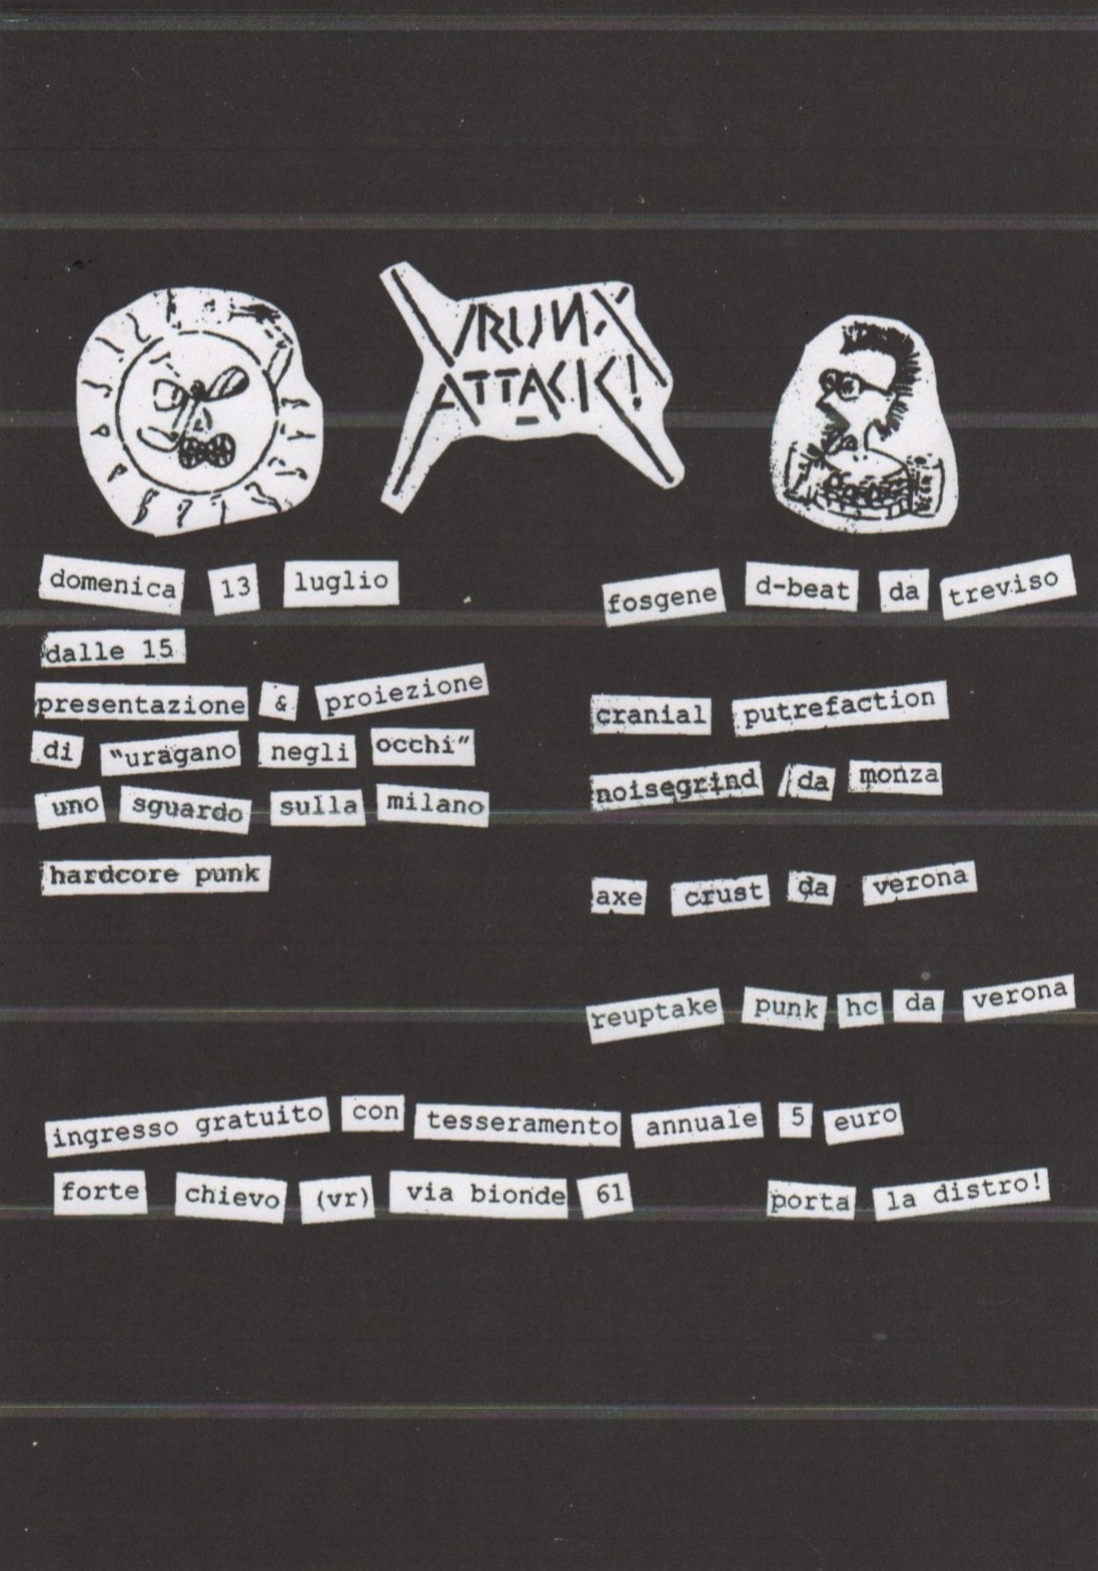 VRUN-X
ATTACK!
domenica 13 luglio
dalle 15
presentazione & proiezione
di "uragano negli occhi"
uno sguardo sulla milano
hardcore punk
fosgene d-beat da treviso
cranial putrefaction
noisegrind da monza
axe crust da verona
reuptake punk hc da verona
ingresso gratuito con tesseramento annuale 5 euro
forte chievo (vr) via bionde 61
porta la distro!